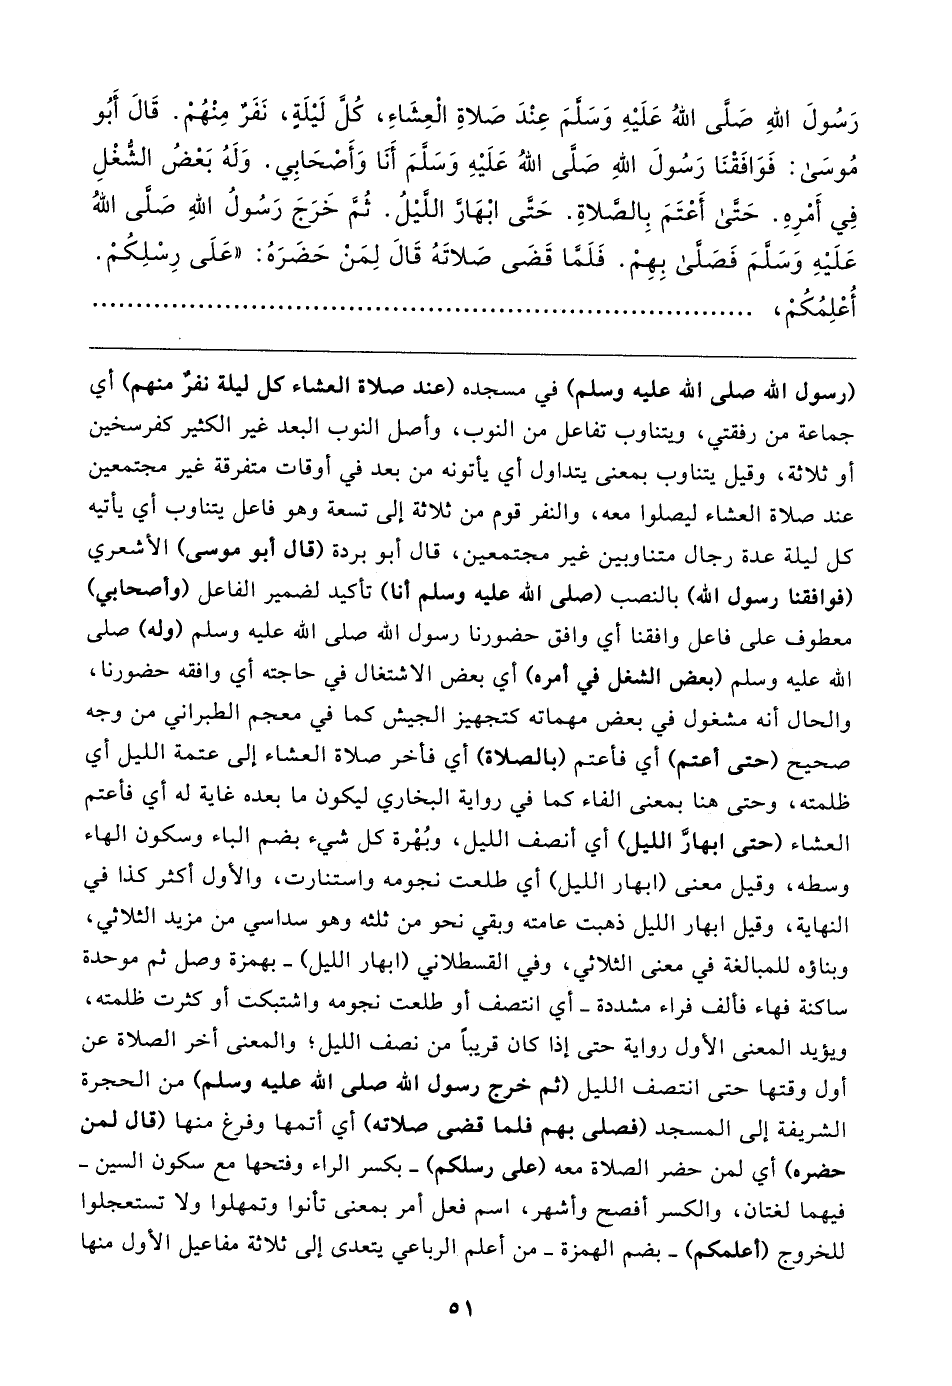 رَسُولَ اللهِ صَلَّى اللهُ عَلَيْهِ وَسَلَّمَ عِنْدَ صَلاةِ الْعِشَاءِ، كُلَّ لَيْلَةٍ، نَفَرٌ مِنْهُمْ. قَالَ أَبُو
مُوسَىٰ: فَوَافَقْنَا رَسُولَ اللهِ صَلَّى اللهُ عَلَيْهِ وَسَلَّمَ أَنَا وَأَصْحَابِي. وَلَهُ بَعْضُ الشُّغْلِ
فِي أَمْرِهِ. حَتَّىٰ أَعْتَمَ بِالصَّلاةِ. حَتَّى ابْهَارَّ اللَّيْلُ. ثُمَّ خَرَجَ رَسُولُ اللهِ صَلَّى اللهُ
عَلَيْهِ وَسَلَّمَ فَصَلَّىٰ بِهِمْ. فَلَمَّا قَضَى صَلاتَهُ قَالَ لِمَنْ حَضَرَهُ: «عَلَى رِسْلِكُمْ.
أُعْلِمُكُمْ، ................................................................
(رسول الله صلى الله عليه وسلم) في مسجده (عند صلاة العشاء كل ليلة نفرٌ منهم) أي
جماعة من رفقتي، ويتناوب تفاعل من النوب، وأصل النوب البعد غير الكثير كفرسخين
أو ثلاثة، وقيل يتناوب بمعنى يتداول أي يأتونه من بعد في أوقات متفرقة غير مجتمعين
عند صلاة العشاء ليصلوا معه، والنفر قوم من ثلاثة إلى تسعة وهو فاعل يتناوب أي يأتيه
كل ليلة عدة رجال متناوبين غير مجتمعين، قال أبو بردة (قال أبو موسى) الأشعري
(فوافقنا رسول الله) بالنصب (صلى الله عليه وسلم أنا) تأكيد لضمير الفاعل (وأصحابي)
معطوف على فاعل وافقنا أي وافق حضورنا رسول الله صلى الله عليه وسلم (وله) صلى
الله عليه وسلم (بعض الشغل في أمره) أي بعض الاشتغال في حاجته أي وافقه حضورنا،
والحال أنه مشغول في بعض مهماته كتجهيز الجيش كما في معجم الطبراني من وجه
صحيح (حتى أعتم) أي فأعتم (بالصلاة) أي فأخر صلاة العشاء إلى عتمة الليل أي
ظلمته، وحتى هنا بمعنى الفاء كما في رواية البخاري ليكون ما بعده غاية له أي فأعتم
العشاء (حتى ابهارَّ الليل) أي أنصف الليل، وبُهْرة كل شيء بضم الباء وسكون الهاء
وسطه، وقيل معنى (ابهار الليل) أي طلعت نجومه واستنارت، والأول أكثر كذا في
النهاية، وقيل ابهار الليل ذهبت عامته وبقي نحو من ثلثه وهو سداسي من مزيد الثلاثي،
وبناؤه للمبالغة في معنى الثلاثي، وفي القسطلاني (ابهار الليل) ـ بهمزة وصل ثم موحدة
ساكنة فهاء فألف فراء مشددة ـ أي انتصف أو طلعت نجومه واشتبكت أو كثرت ظلمته،
ويؤيد المعنى الأول رواية حتى إذا كان قريباً من نصف الليل؛ والمعنى أخر الصلاة عن
أول وقتها حتى انتصف الليل (ثم خرج رسول الله صلى الله عليه وسلم) من الحجرة
الشريفة إلى المسجد (فصلى بهم فلما قضى صلاته) أي أتمها وفرغ منها (قال لمن
حضره) أي لمن حضر الصلاة معه (على رسلكم) ـ بكسر الراء وفتحها مع سكون السين ـ
فيهما لغتان، والكسر أفصح وأشهر، اسم فعل أمر بمعنى تأنوا وتمهلوا ولا تستعجلوا
للخروج (أعلمكم) ـ بضم الهمزة ـ من أعلم الرباعي يتعدى إلى ثلاثة مفاعيل الأول منها
٥١